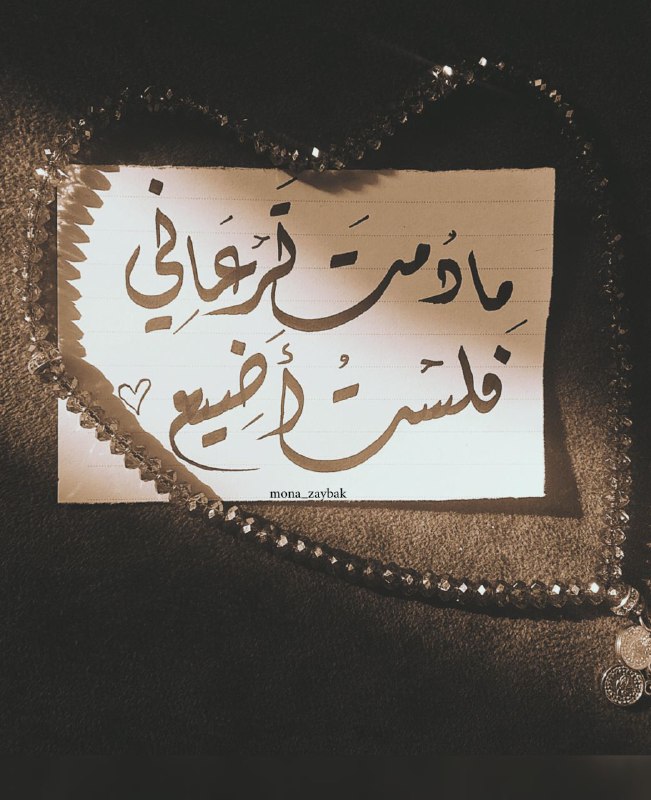 مادُمتَ تَرُعَاني
فلستُ أَضِيع
mona_zaybak